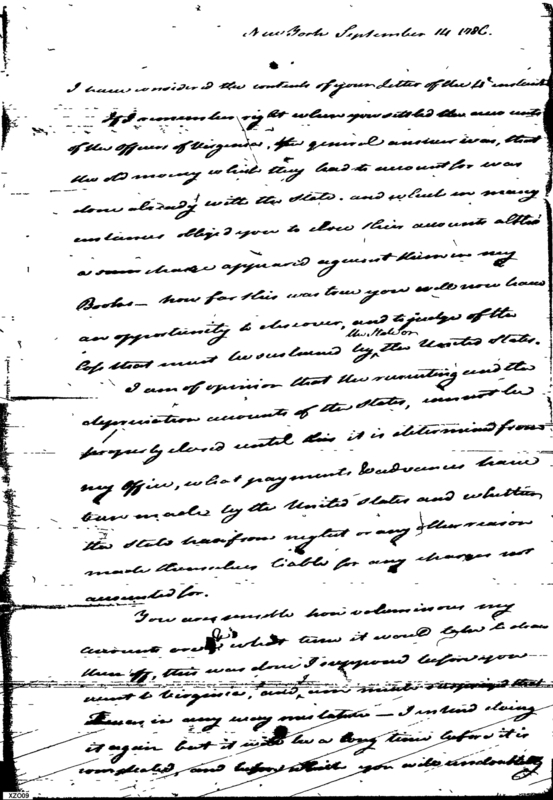 New York September 14 1786.
I have considered the contents of your letter of the 4th instant
If I remember right when you settled the accounts
of the Officers of Virginia, the general answer was, that
the old money which they had to account for was
done already with the State. and which in many
instances obliged you to close their accounts altho
a sum charge appeared against them in my
Books — how far this was true you will now have
an opportunity to discover, and to judge of the
the State or
Loss that must be sustained by the United States.
I am of opinion that the recruiting and the
depreciation accounts of the States, cannot be
properly closed until this it is determined from
my Office, what payments & advances have
been made by the United States and whether
the State have from neglect or any other reason
made themselves liable for any charges not
accounted for.
You are sensible how voluminous my
accounts are & what time it would take to draw
them off, this was done I supposed before you
went to Virginia, and I am much surprised that
I was in any way mistaken — I intend doing
it again but it will be a long time before it is
completed, and before which you will undoubtedly
XZO09